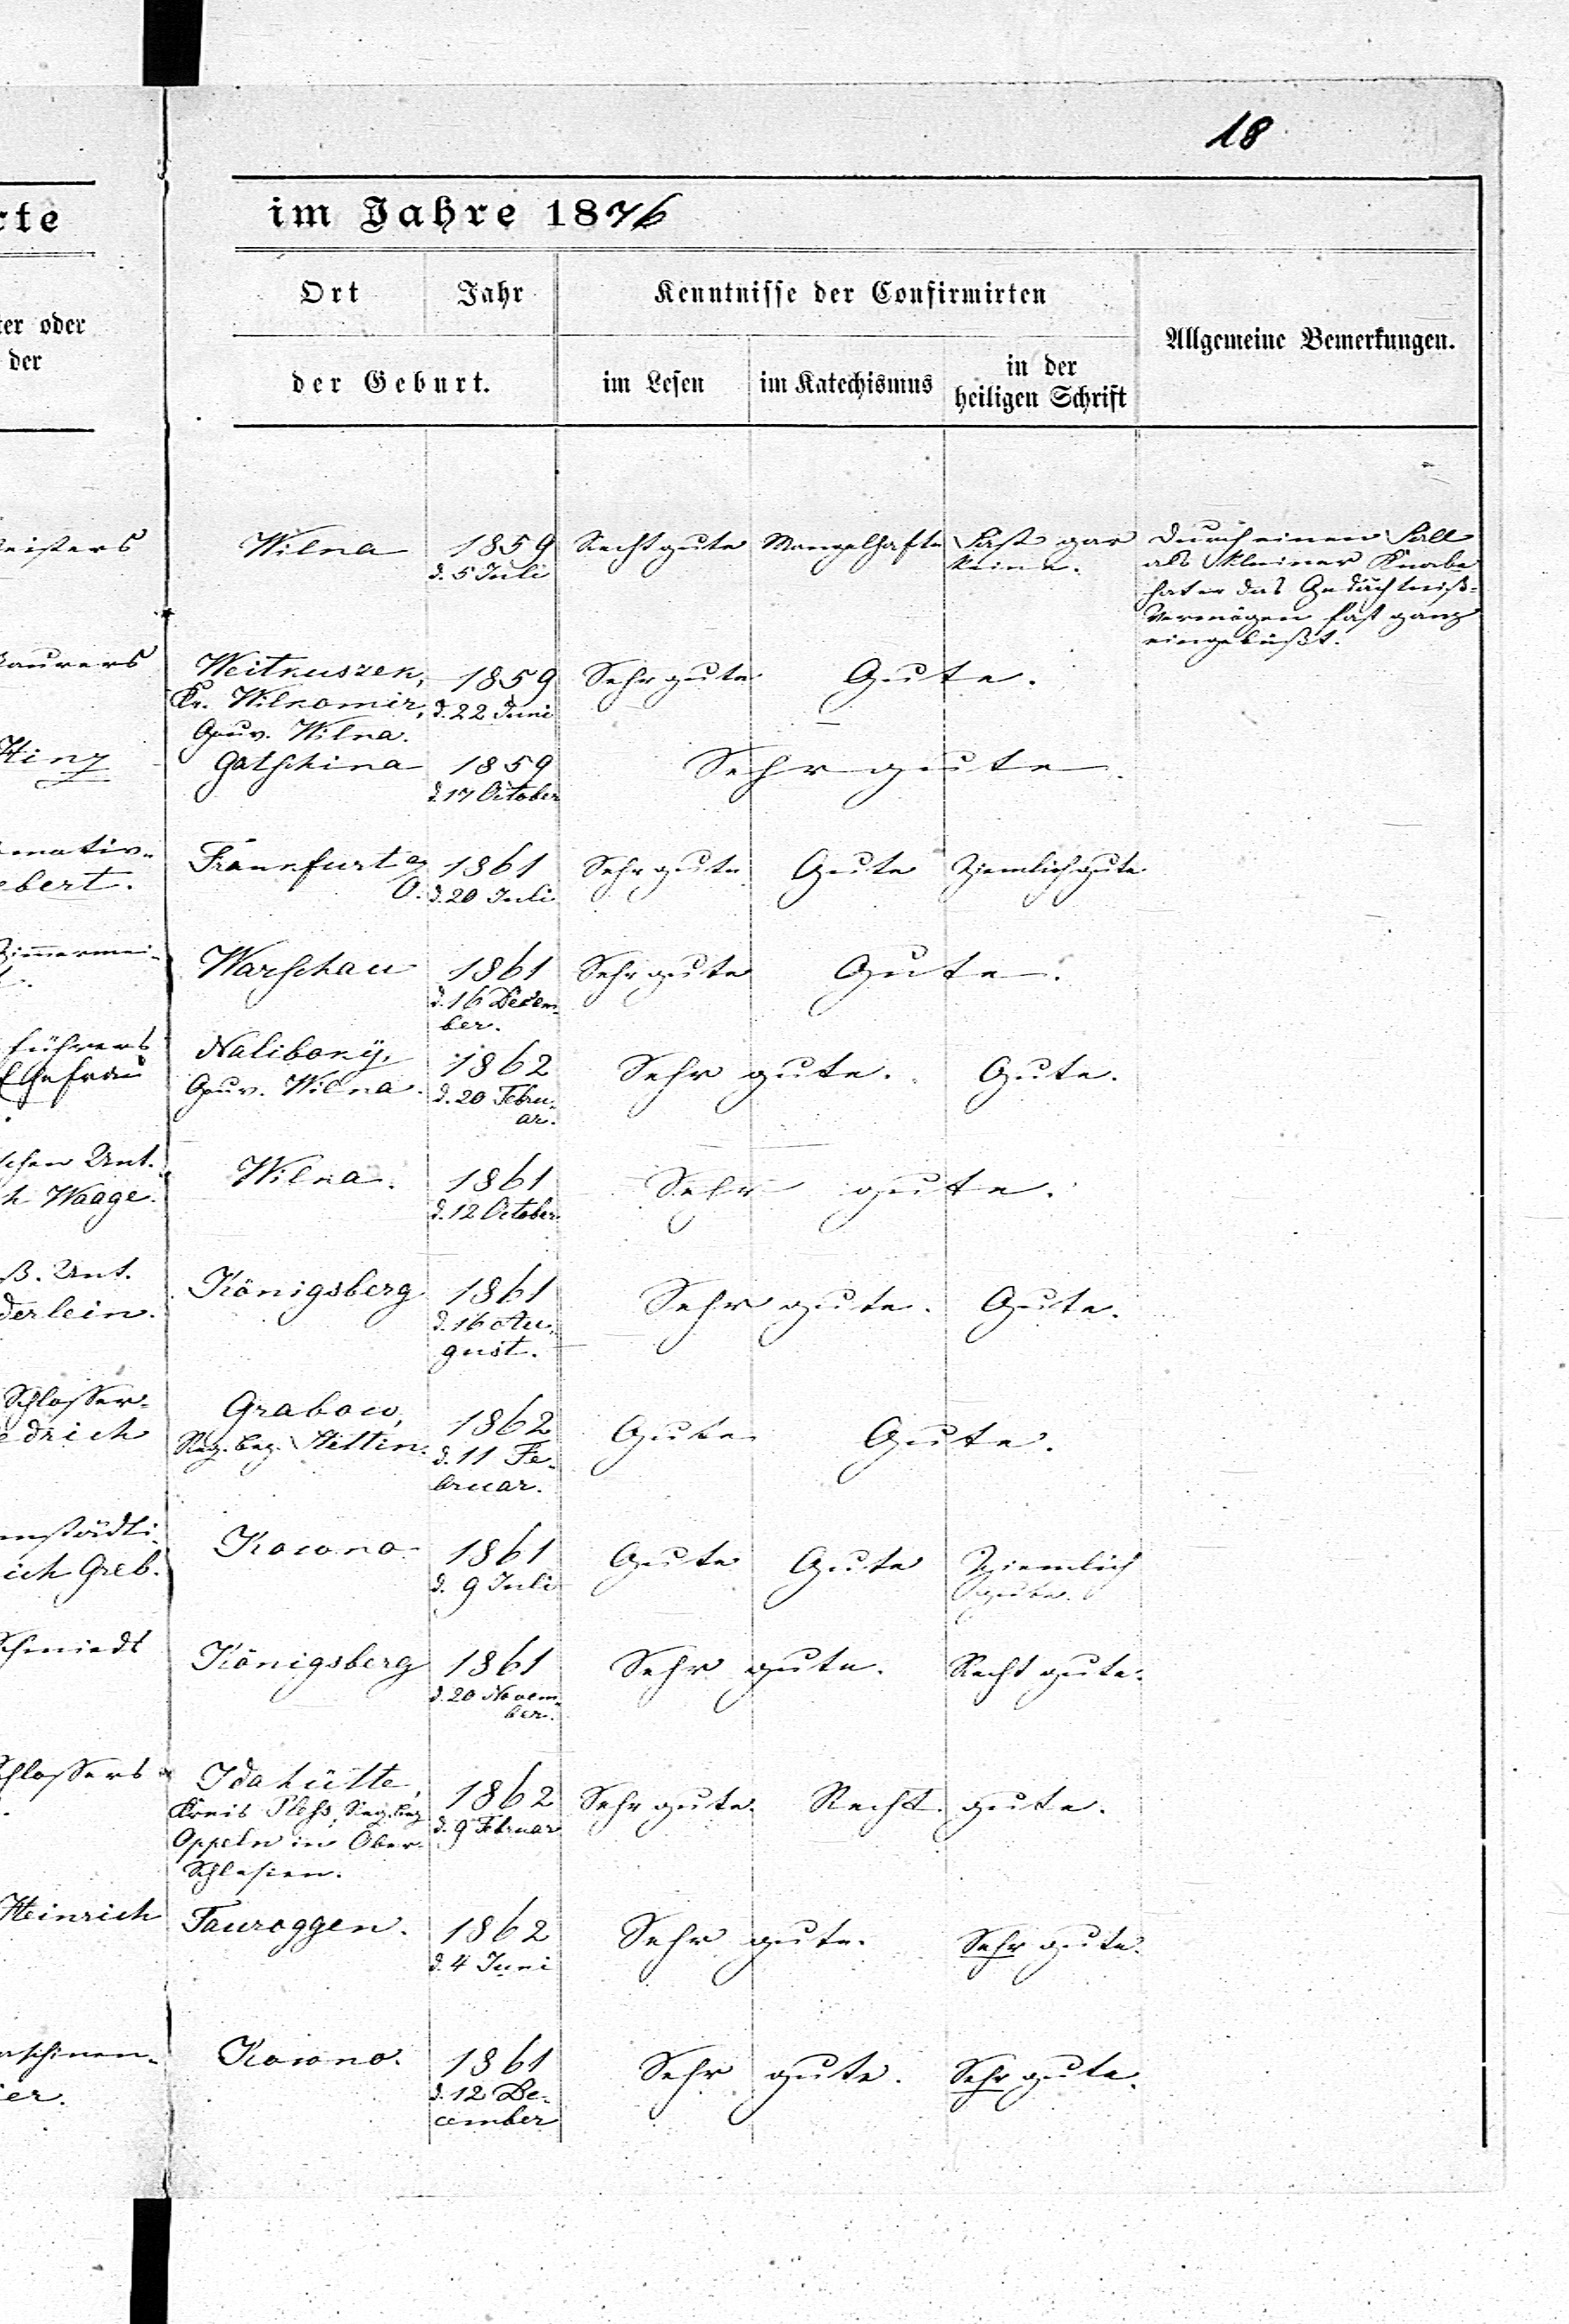 18
rte
im Jahre 1876
ter oder
der
Ort
Jahr
der Geburt.
Kenntnisse der Confirmirten
im Lesen
im Katechismus
in der
heiligen Schrift
Allgemeine Bemerkungen.
meisters
Wilna
1859
d. 5 Juli
Recht gute
Mangelhafte
Fast gar
keine.
Durch einen Fall
als kleiner Knabe
hat er das Gedächtniß-
Vermögen fast ganz
eingebüßt.
Maurers
Weitkuszen,
Kr. Wilkomir,
Gouv. Wilna.
1859
d. 22 Juni
Sehr gute
Gute.
Hinz
Gatschina
1859
d. 17 October
Sehr gute.
ebert.
Frankfurt a/
O.
1861
d. 20 Juli
Sehr gute
Gute
Ziemlich gute
Zimmermei-
Warschau
1861
d. 16 Decem-
ber.
Sehr gute
Gute.
führers
Ehefrau
Naliboky,
Gouv. Wilna.
1862
d. 20 Febru-
ar.
Sehr gute.
Gute.
schen Unt.
h Waage.
Wilna.
1861
d. 12 October.
Sehr gute.
ß. Unt.
derlein.
Königsberg
1861
d. 16 Au-
gust.
Sehr gute.
Gute.
Schlosser-
edrich
Grabow,
Reg. bez. Stettin.
1862
d. 11 Fe-
bruar.
Gute
Gute.
mstädti-
ich Greb.
Kowno.
1861
d. 9 Juli
Gute
Gute
Ziemlich
gute.
Schmiedt
Königsberg
1861
d. 20 Novem-
ber.
Sehr gute.
Recht gute.
Schlossers
Idahütte,
Kreis Pless, Reg. bez
Oppeln in Ober-
Schlesien.
1862
d. 9 Februar
Sehr gute.
Recht gute.
Heinrich
Tauroggen.
1862
d. 4 Juni
Sehr gute.
Sehr gute.
aschinen-
ier.
Kowno.
1861
d. 12 De-
cember
Sehr gute.
Sehr gute.